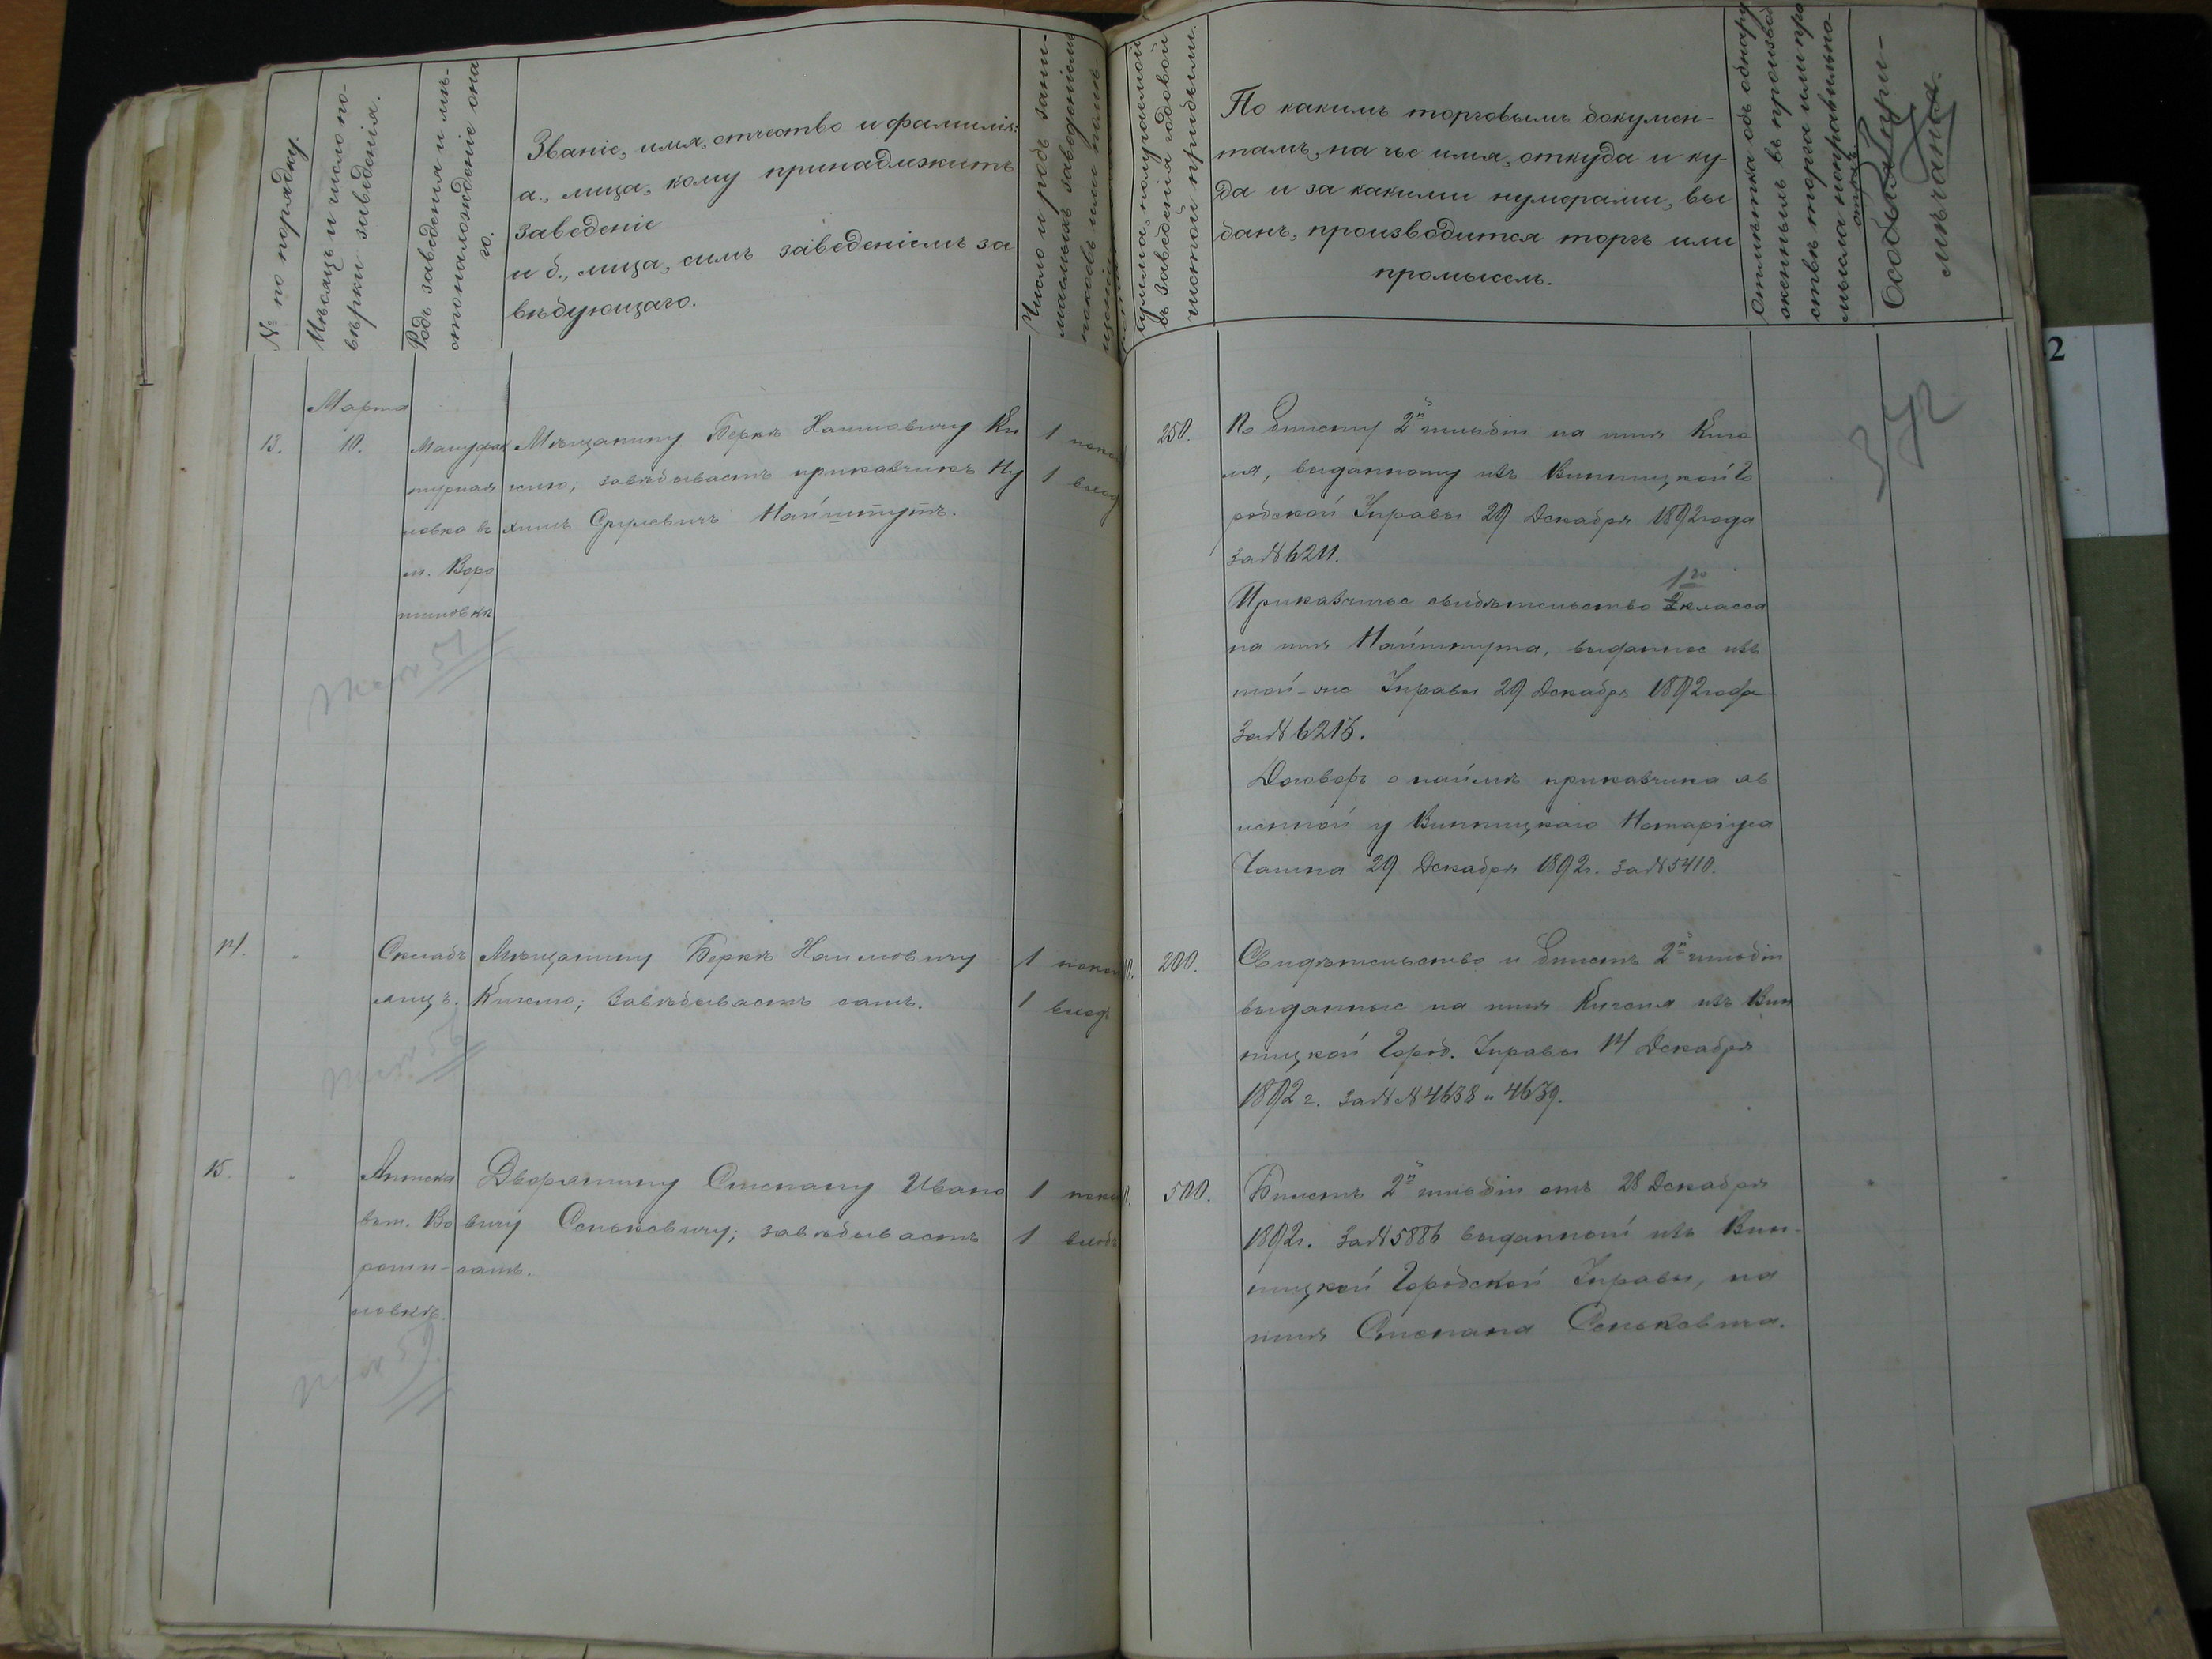 № по порядку.
Мѣсяцъ и число по-
вѣрки заведенія.
Родъ заведенія и мѣ-
стонахожденіе она
го.
Званіе, имя, отчество и фамилія:
а., лица, кому принадлежитъ
заведеніе
и б., лица, симъ заведеніемъ за
вѣдующаго.
Число и родъ зани-
маемыхъ заведеніемъ
покоевъ или помѣ-
Сумма, получаемой
въ заведенія годовой
чистой прибыли.
По какимъ торговымъ докумен-
тамъ, на чье имя, откуда и ку-
да и за какими нумерами, вы
данъ, производится торгъ или
промыселъ.
Отмѣтка объ обнару
женныхъ въ производ
ствѣ торга или про
мысла неправильно-
стяхъ
Особыя при-
мѣчанія.
372
Марта
13.
10.
Мануфак
турная
лавка въ
м. Воро
шиловкѣ
Мѣщанину Беркѣ Хаимовичу Ки
гелю; завѣдываетъ прикащикъ Ну
химъ Сруловичъ Найштутъ.
1 покой
1 входъ
250.
По билету 2й гильдіи на имя Киге
ля, выданному изъ Винницкой Го
родской Управы 29 Декабря 1892 года
за № 6211.
1го
Приказчичье свидѣтельство 2 класса
на имя Найштута, выданное изъ
той-же Управы 29 Декабря 1892 года
за № 6213.
Договоръ о наймѣ приказчика яв
ленной у Винницкаго Нотаріуса
29 Декабря 1892 г. за № 5410.
57
14.
"
Складъ
яицъ.
Мѣщанину Беркѣ Хаимовичу
Кигелю; завѣдываетъ самъ.
1 покой
1 входъ
200.
Свидѣтельство и билетъ 2й гильдіи
выданные на имя Кигеля изъ Вин
ницкой Город. Управы 14 Декабря
1892 г. за №№ 4638 и 4639.
15.
"
Аптека
въ м. Во
роши-
ловкѣ.
Дворянину Степану Ивано
вичу Сеньковичу; завѣдываетъ
самъ.
1 покой
1 входъ
500.
Билетъ 2й гильдіи отъ 28 Декабря
1892 г. за № 5886 выданный изъ Вин-
ницкой Городской Управы, на
имя Степана Сеньковича.
"
"
59